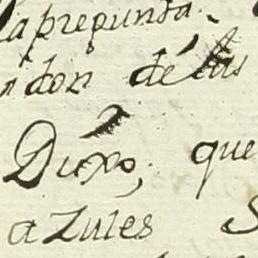 la pregunta.
don de las
Dixo, que
azules